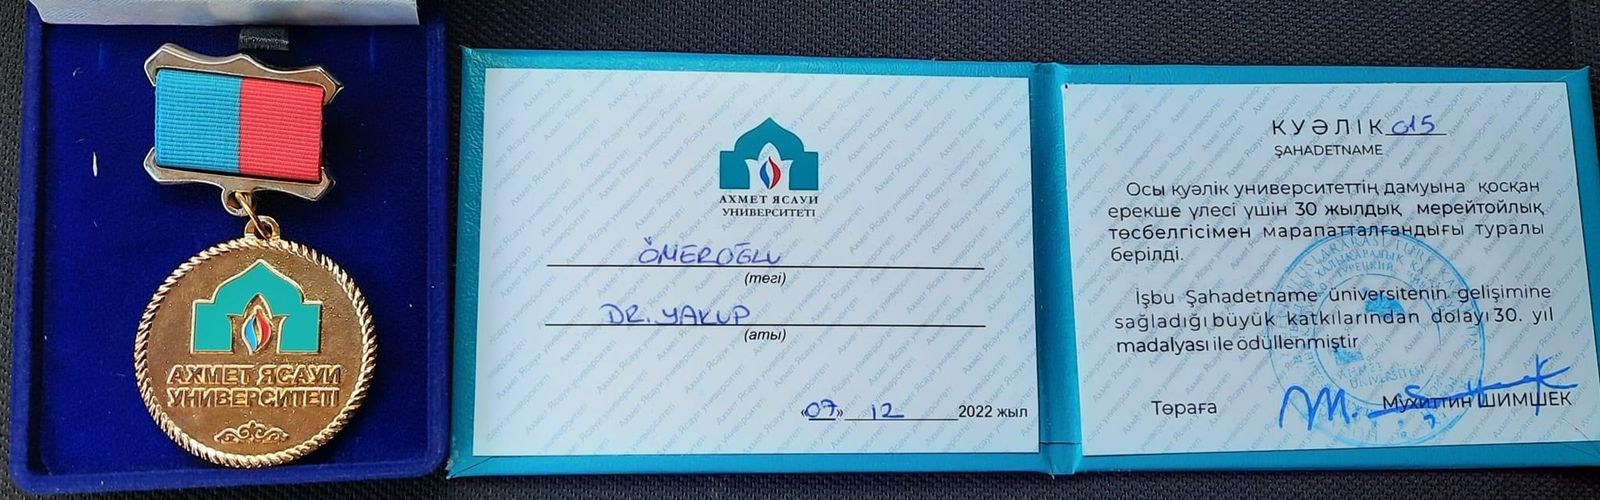 АХМЕТ ЯСАУИ
УНИВЕРСИТЕТІ
АХМЕТ ЯСАУИ
УНИВЕРСИТЕТІ
ÖMEROĞLU
(тегі)
DR. YAKUP
(аты)
«07» 12 2022 жыл
КУӘЛІК 015
ŞAHADETNAME
Осы куәлік университеттің дамуына қосқан
ерекше үлесі үшін 30 жылдық мерейтойлық
төсбелгісімен марапатталғандығы туралы
берілді.
İşbu Şahadetname üniversitenin gelişimine
sağladığı büyük katkılarından dolayı 30. yıl
madalyası ile ödüllenmiştir
Төраға Мухиттин ШИМШЕК